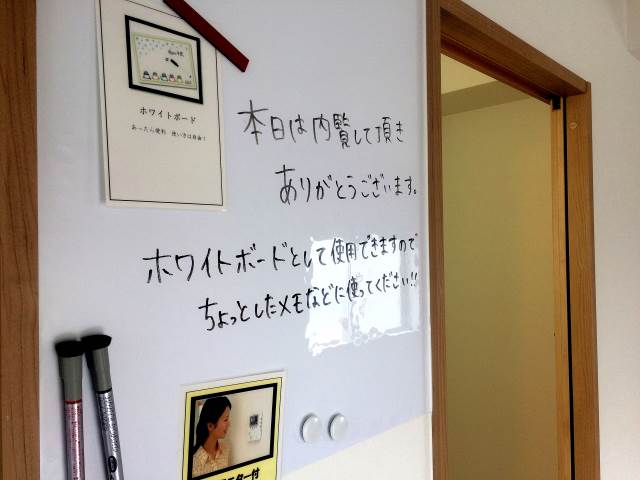 ホワイトボード
あったら便利 使い方は自由！
本日は内覧して頂き
ありがとうございます。
ホワイトボードとして使用できますので
ちょっとしたメモなどに使ってください!!
ター付